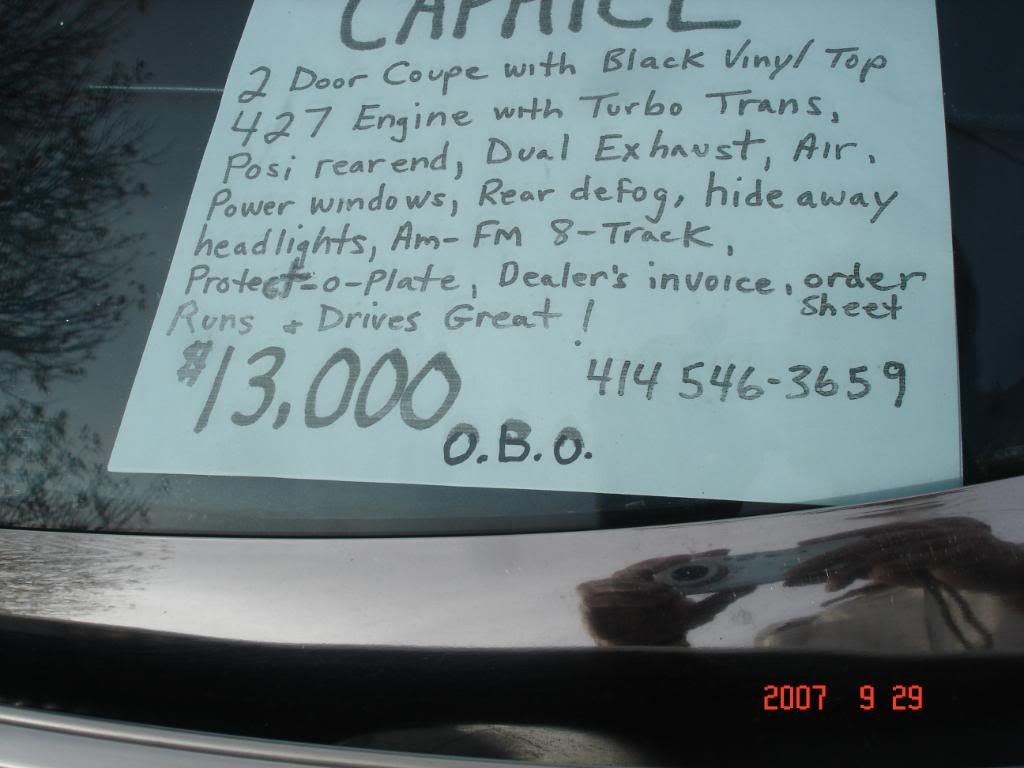 CAPRICE
2 Door Coupe with Black Vinyl Top
427 Engine with Turbo Trans,
Posi rear end, Dual Exhaust, Air,
Power windows, Rear defog, hide away
headlights, Am-FM 8-Track,
Protect-o-Plate, Dealer's invoice, order
Sheet
Runs + Drives Great!
$13,000 414 546-3659
O.B.O.
2007 9 29